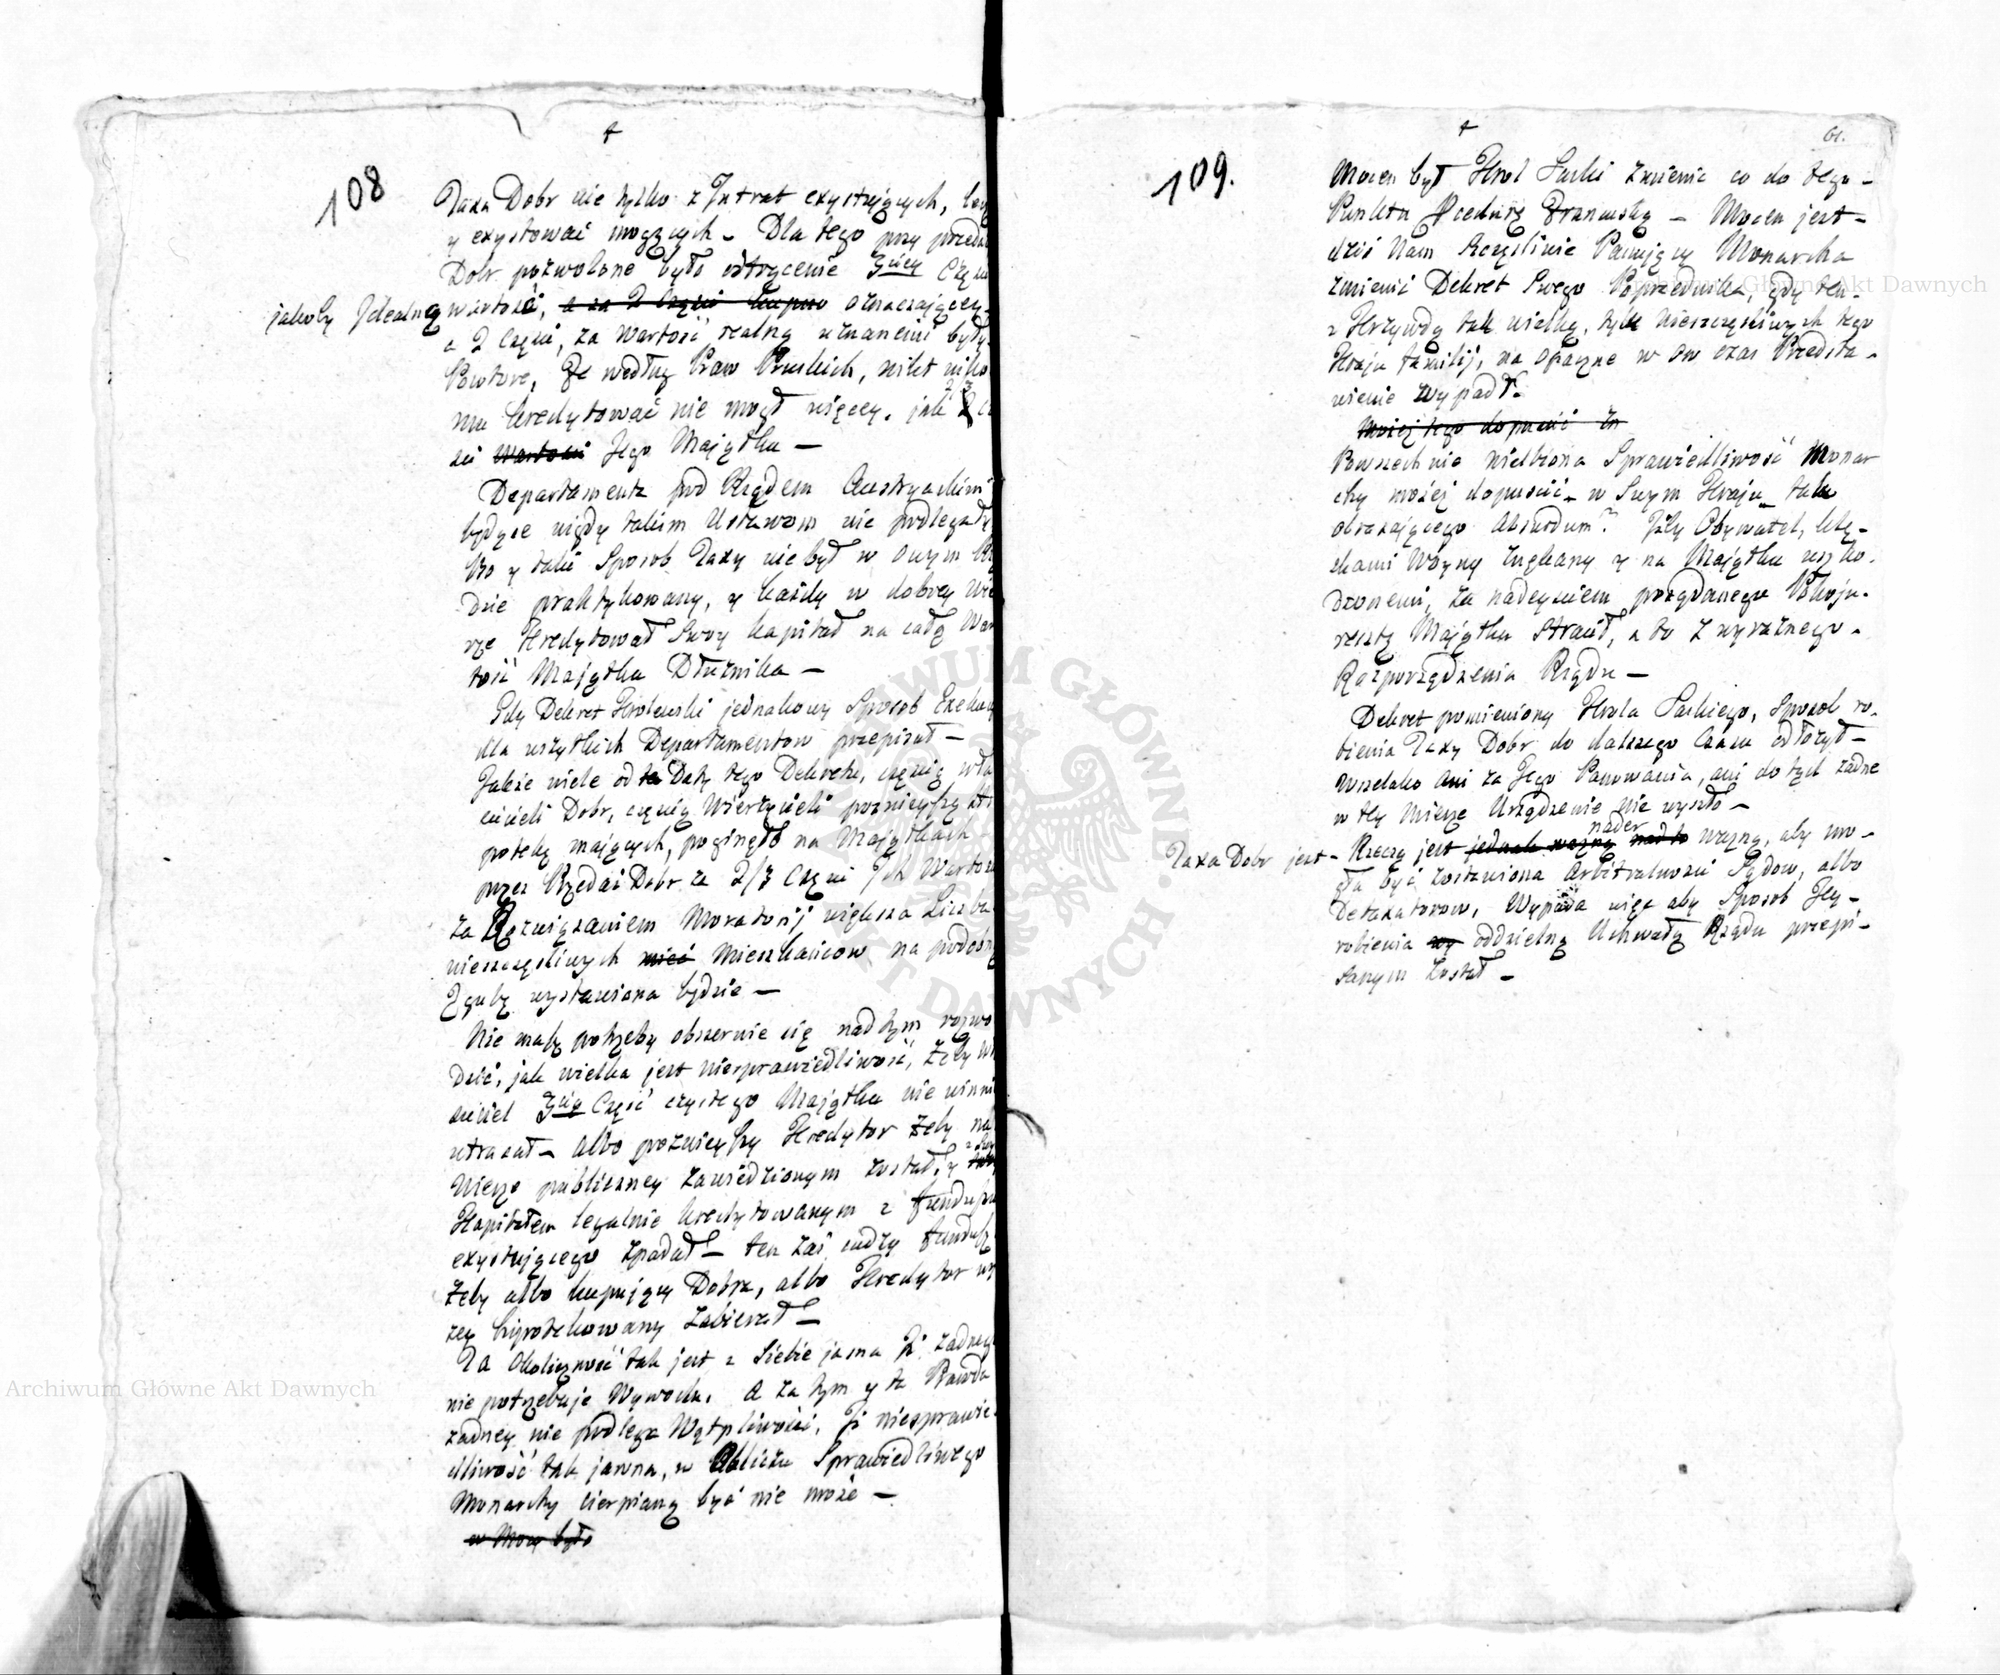 108
Taxa Dobr nie tylko z Intrat exystujących, lecz
y exystować mogących – Dla tego przy przeda
Dobr pozwolone było odtrącenie 3ciey Częsci
jakoby Idealną wartość, a za 2 Części kupno oznaczającey
a 2 Części, za wartość realną uznanemi były.
Powtore, Że według Praw Pruskich, nikt niko
mu kredytować nie mogł więcey, jak 2/3 c
sci wartosci Jego Maiątku –
Departamenta pod Rządem Austryackim
będące nigdy takim Ustawom nie podlegały
Bo y taki Sposob Taxy nie był w owym
dzie praktykowany, y każdy w dobrey wie
rze Kredytował Swoy kapitał na całą War
tość Majątku Dłużnika –
Gdy Dekret Krolewski jednakowy Sposob Exekucy
dla wszytkich Departamentow przepisał –
Jakże wiele od ta Daty tego Dekretu, częscią wła
cicieli Dobr, częscią Wierzycieli poznieyszą
potekę maiących, poginęło na Maiątkach
przez Przedaż Dobr za 2/3 Częsci Ich Wartosci
Za Rozwiązaniem Moratorij większa Liczba
nieszczęsliwych mieć Mieszkańcow na podobną
Zgubę wystawiona będzie –
Nie masz potrzeby obszernie się nad tym rozwo
dzić, jak wielka jest niesprawiedliwość, Żeby w
sciciel 3cią Część czystego Majątku nie winni
utracał – albo poznieyszy Kredytor Żeby na
Wierze publiczney zawiedzionym został, y z Swy
Kapitałem legalnie kredytowanym z funduszu
exystującego spadał – ten zas cudzy fundusz
Żeby albo kupujący Dobra, albo Kredytor wy
zey hipotekowany zabierał –
Ta okoliczność tak jest z siebie jasna Iż żadnego
nie potrzebuje Wywodu. A za tym y ta Prawda
żadney nie podlega Wątpliwości, Iż niesprawie
dliwość tak jawna, w Obliczu Sprawiedliwego
Monarchy cierpianą być nie może –
w Mocy było
109.
61.
Mocen był Krol Saski zmienić co do tego –
Punktu Procedurę Pruską – Mocen jest –
dziś Nam Szczęsliwie Panujący Monarcha
zmienić Dekret Swego Poprzednika, gdy ten
z Krzywdą tak wielką, tylu nieszczęsliwych tego
Kraju familij, na opaczne w ow czas Przedsta –
wienie wypadł.
Możesz tego dopuscić Za
Powszechnie wielbiona Sprawiedliwość Monar
chy możej dopuscić – w Swym Kraju – tak
obrażającego absurdum? Iżby Obywatel, klę –
skami Woyny znękany y na Majątku uszko –
dzonemi, za nadeysciem pożądanego Pokoju
resztę Majątku stracił, a to z wyraźnego –
Rozporządzenia Rządu –
Dekret pomieniony Krola Saskiego, Sposob ro –
bienia Taxy Dobr do dalszego Czasu odłożył –
wszelako ani za Jego Panowania, ani do tych żadne
w tey mierze Urządzenie nie wyszło –
Taxa Dobr jest – Rzeczą jest jednak ważną nadto nader ważną, aby mo –
gła być zostawiona arbitralnosci Sądow, albo
Detaxatorow, Wypada więc aby Sposob Jey –
robienia wy oddzielną Uchwałą Rządu przepi –
sanym został –
Archiwum Główne Akt Dawnych
Archiwum Główne Akt Dawnych
ARCHIWUM GŁÓWNE AKT DAWNYCH